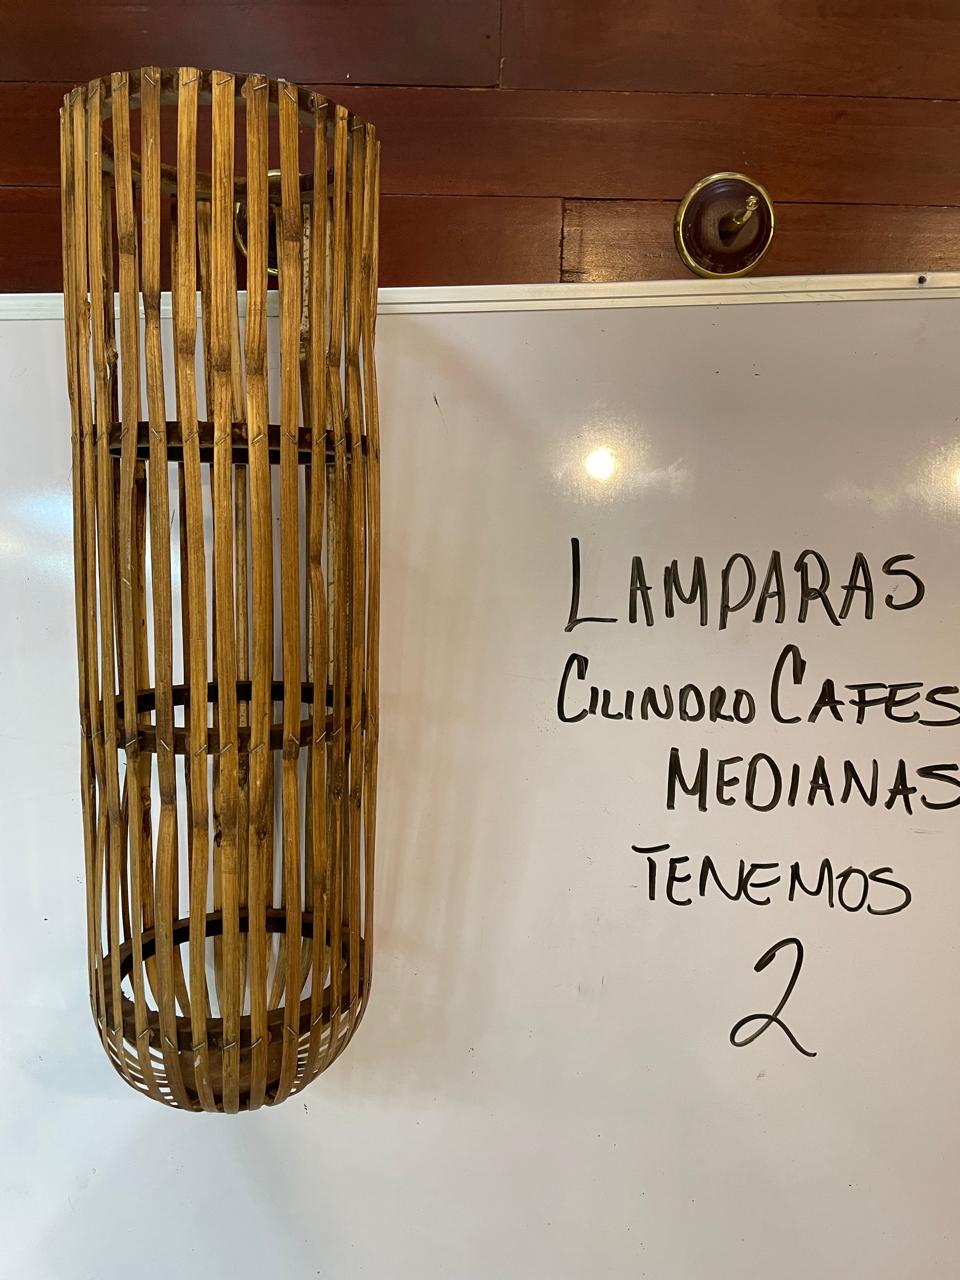 LAMPARAS
CILINDRO CAFES
MEDIANAS
TENEMOS
2